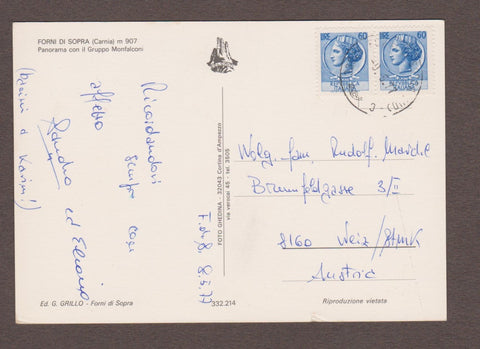 FORNI DI SOPRA (Carnia) m 907
Panorama con il Gruppo Monfalconi
LIRE 60
LIRE 60
Ricordandovi
sempre con
affetto
Sandro ed
(bacini a Karin!)
F.d.S. 8.5.77
FOTO GHEDINA - 32043 Cortina d'Ampezzo
via verocai 45 - tel. 3605
Wolg. fam. Rudolf
3/II
8160 Weiz/Stmk
Austria
Ed. G. GRILLO - Forni di Sopra
332.214
Riproduzione vietata